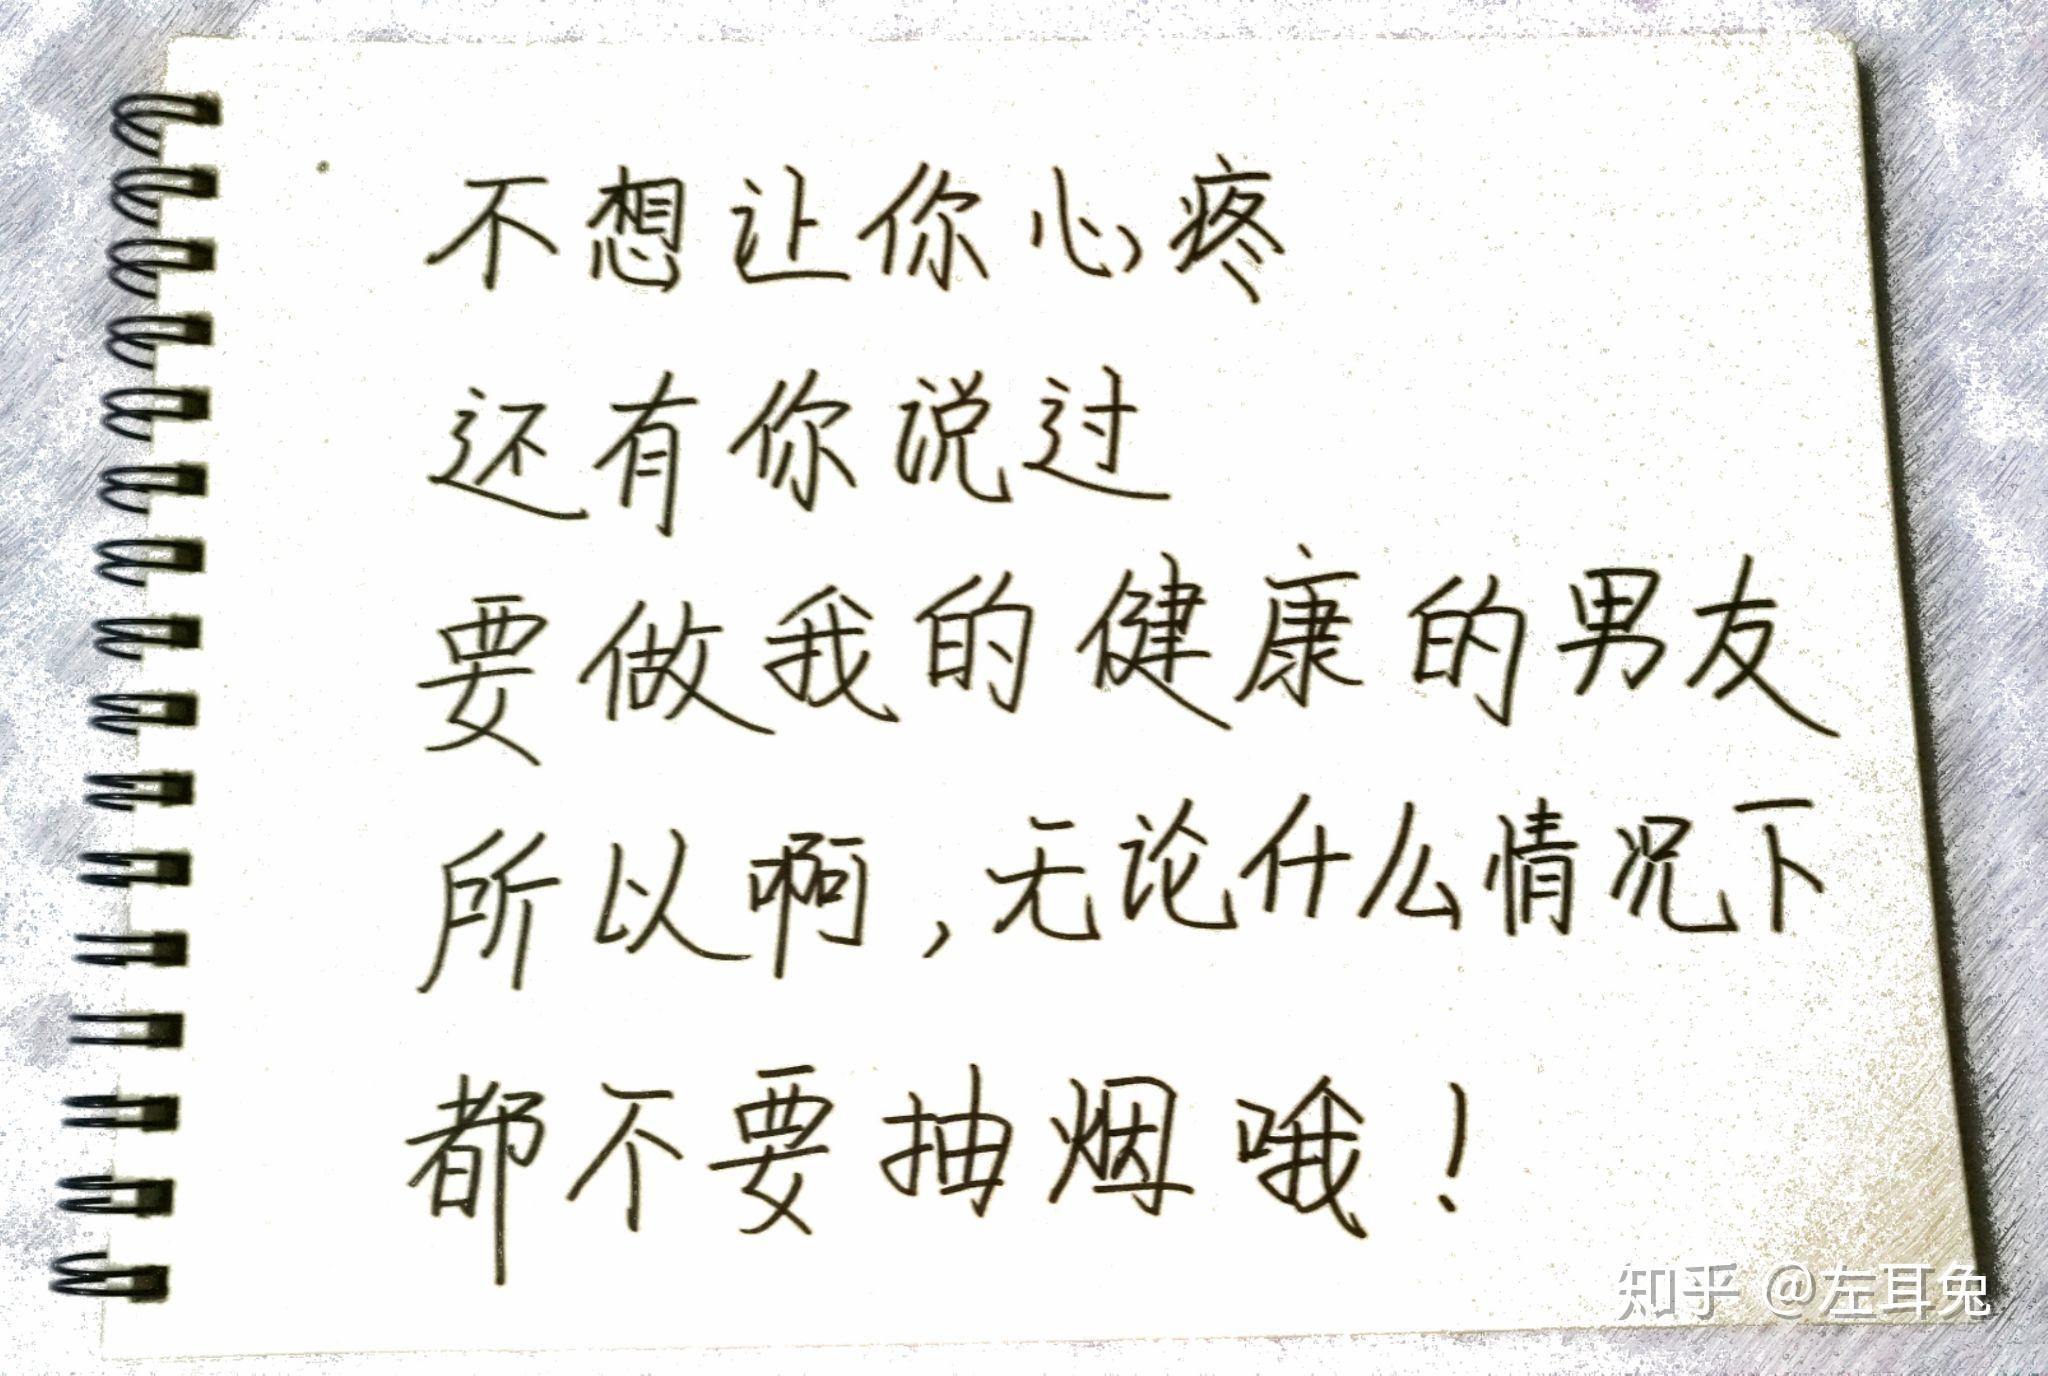 不想让你心疼
还有你说过
要做我的健康的男友
所以啊,无论什么情况下
都不要抽烟哦!
知乎 @左耳兔